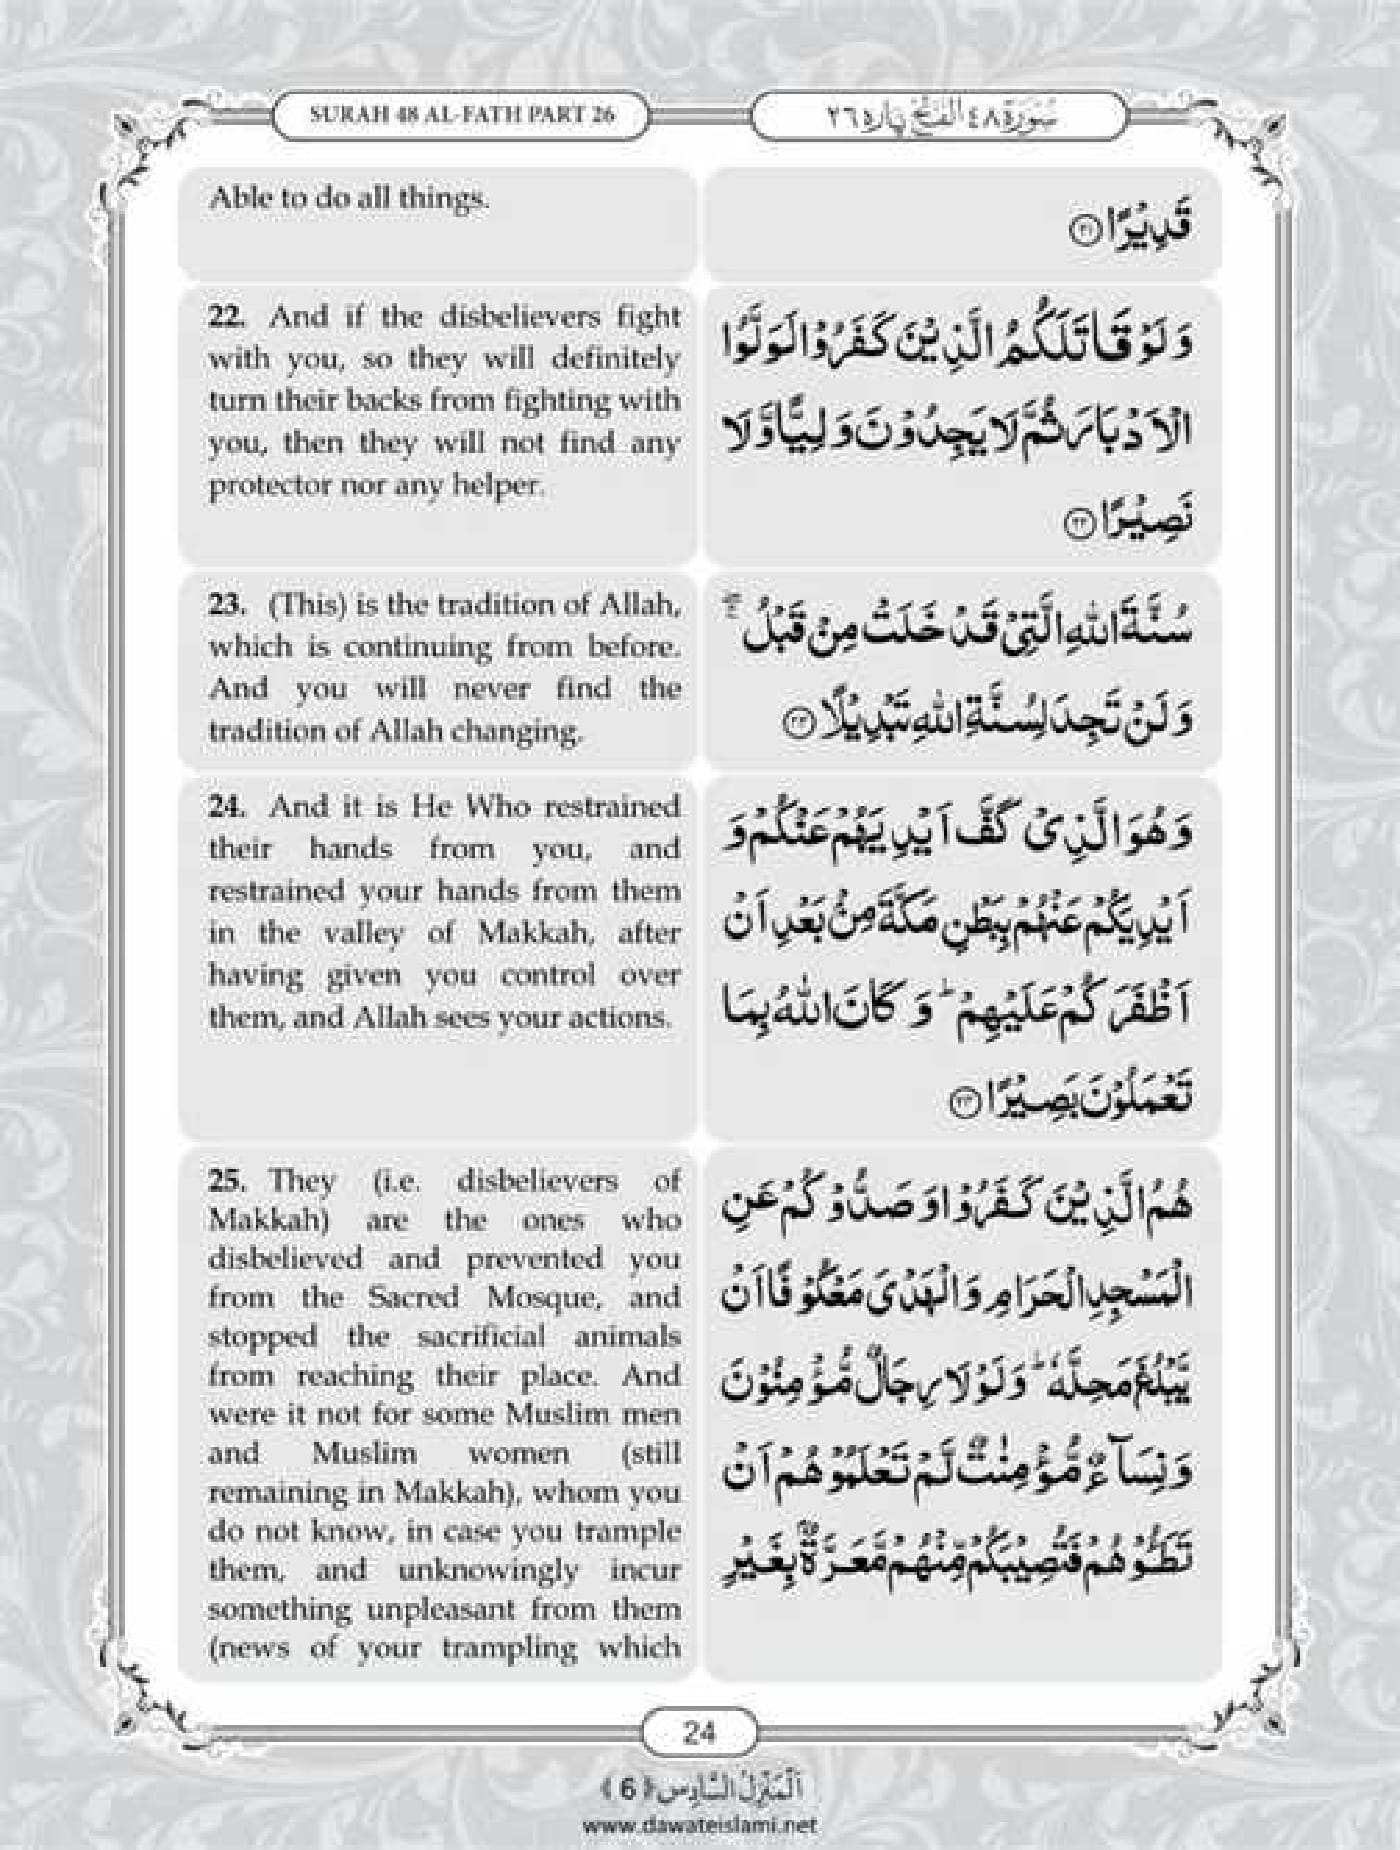 SURAH 48 AL-FATH PART 26
سُوْرَة ٤٨ الفَتْح پاره ٢٦
Able to do all things.
قَدِیْرًا ﴿۲۱﴾
22. And if the disbelievers fight
with you, so they will definitely
turn their backs from fighting with
you, then they will not find any
protector nor any helper.
وَ لَوْ قَاتَلَكُمُ الَّذِیْنَ كَفَرُوْا لَوَلَّوُا
الْاَدْبَارَ ثُمَّ لَا یَجِدُوْنَ وَلِیًّا وَّ لَا
نَصِیْرًا ﴿۲۲﴾
23. (This) is the tradition of Allah,
which is continuing from before.
And you will never find the
tradition of Allah changing.
سُنَّةَ اللّٰهِ الَّتِیْ قَدْ خَلَتْ مِنْ قَبْلُ ۖۚ
وَ لَنْ تَجِدَ لِسُنَّةِ اللّٰهِ تَبْدِیْلًا ﴿۲۳﴾
24. And it is He Who restrained
their hands from you, and
restrained your hands from them
in the valley of Makkah, after
having given you control over
them, and Allah sees your actions.
وَ هُوَ الَّذِیْ كَفَّ اَیْدِیَهُمْ عَنْكُمْ وَ
اَیْدِیَكُمْ عَنْهُمْ بِبَطْنِ مَكَّةَ مِنْۢ بَعْدِ اَنْ
اَظْفَرَكُمْ عَلَیْهِمْ ؕ وَ كَانَ اللّٰهُ بِمَا
تَعْمَلُوْنَ بَصِیْرًا ﴿۲۴﴾
25. They (i.e. disbelievers of
Makkah) are the ones who
disbelieved and prevented you
from the Sacred Mosque, and
stopped the sacrificial animals
from reaching their place. And
were it not for some Muslim men
and Muslim women (still
remaining in Makkah), whom you
do not know, in case you trample
them, and unknowingly incur
something unpleasant from them
(news of your trampling which
هُمُ الَّذِیْنَ كَفَرُوْا وَ صَدُّوْكُمْ عَنِ
الْمَسْجِدِ الْحَرَامِ وَ الْهَدْیَ مَعْكُوْفًا اَنْ
یَّبْلُغَ مَحِلَّهٗ ؕ وَ لَوْ لَا رِجَالٌ مُّؤْمِنُوْنَ
وَ نِسَآءٌ مُّؤْمِنٰتٌ لَّمْ تَعْلَمُوْهُمْ اَنْ
تَطَـُٔوْهُمْ فَتُصِیْبَكُمْ مِّنْهُمْ مَّعَرَّةٌۢ بِغَیْرِ
24
اَلْمَنْزِلُ السَّادِس ﴿6﴾
www.dawateislami.net